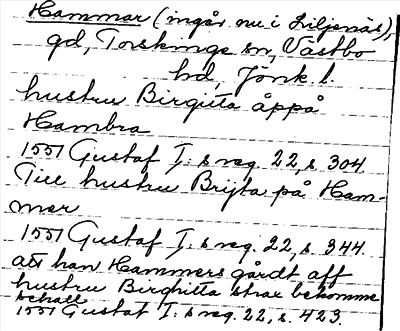 Hammar (ingår nu i Liljenäs),
gd, Torskinge sn, Västbo
hd, Jönk. l.
hustru Birgitta åppå
Hambra
1551 Gustaf I: s reg. 22, s. 304.
Till hustru Brijta på Ham-
mar
1551 Gustaf I: s reg. 22, s. 344.
att han Hammers gårdt aff
hustru Birghitta strax bekomme
behall
1551 Gustaf I: s reg. 22, s. 423.